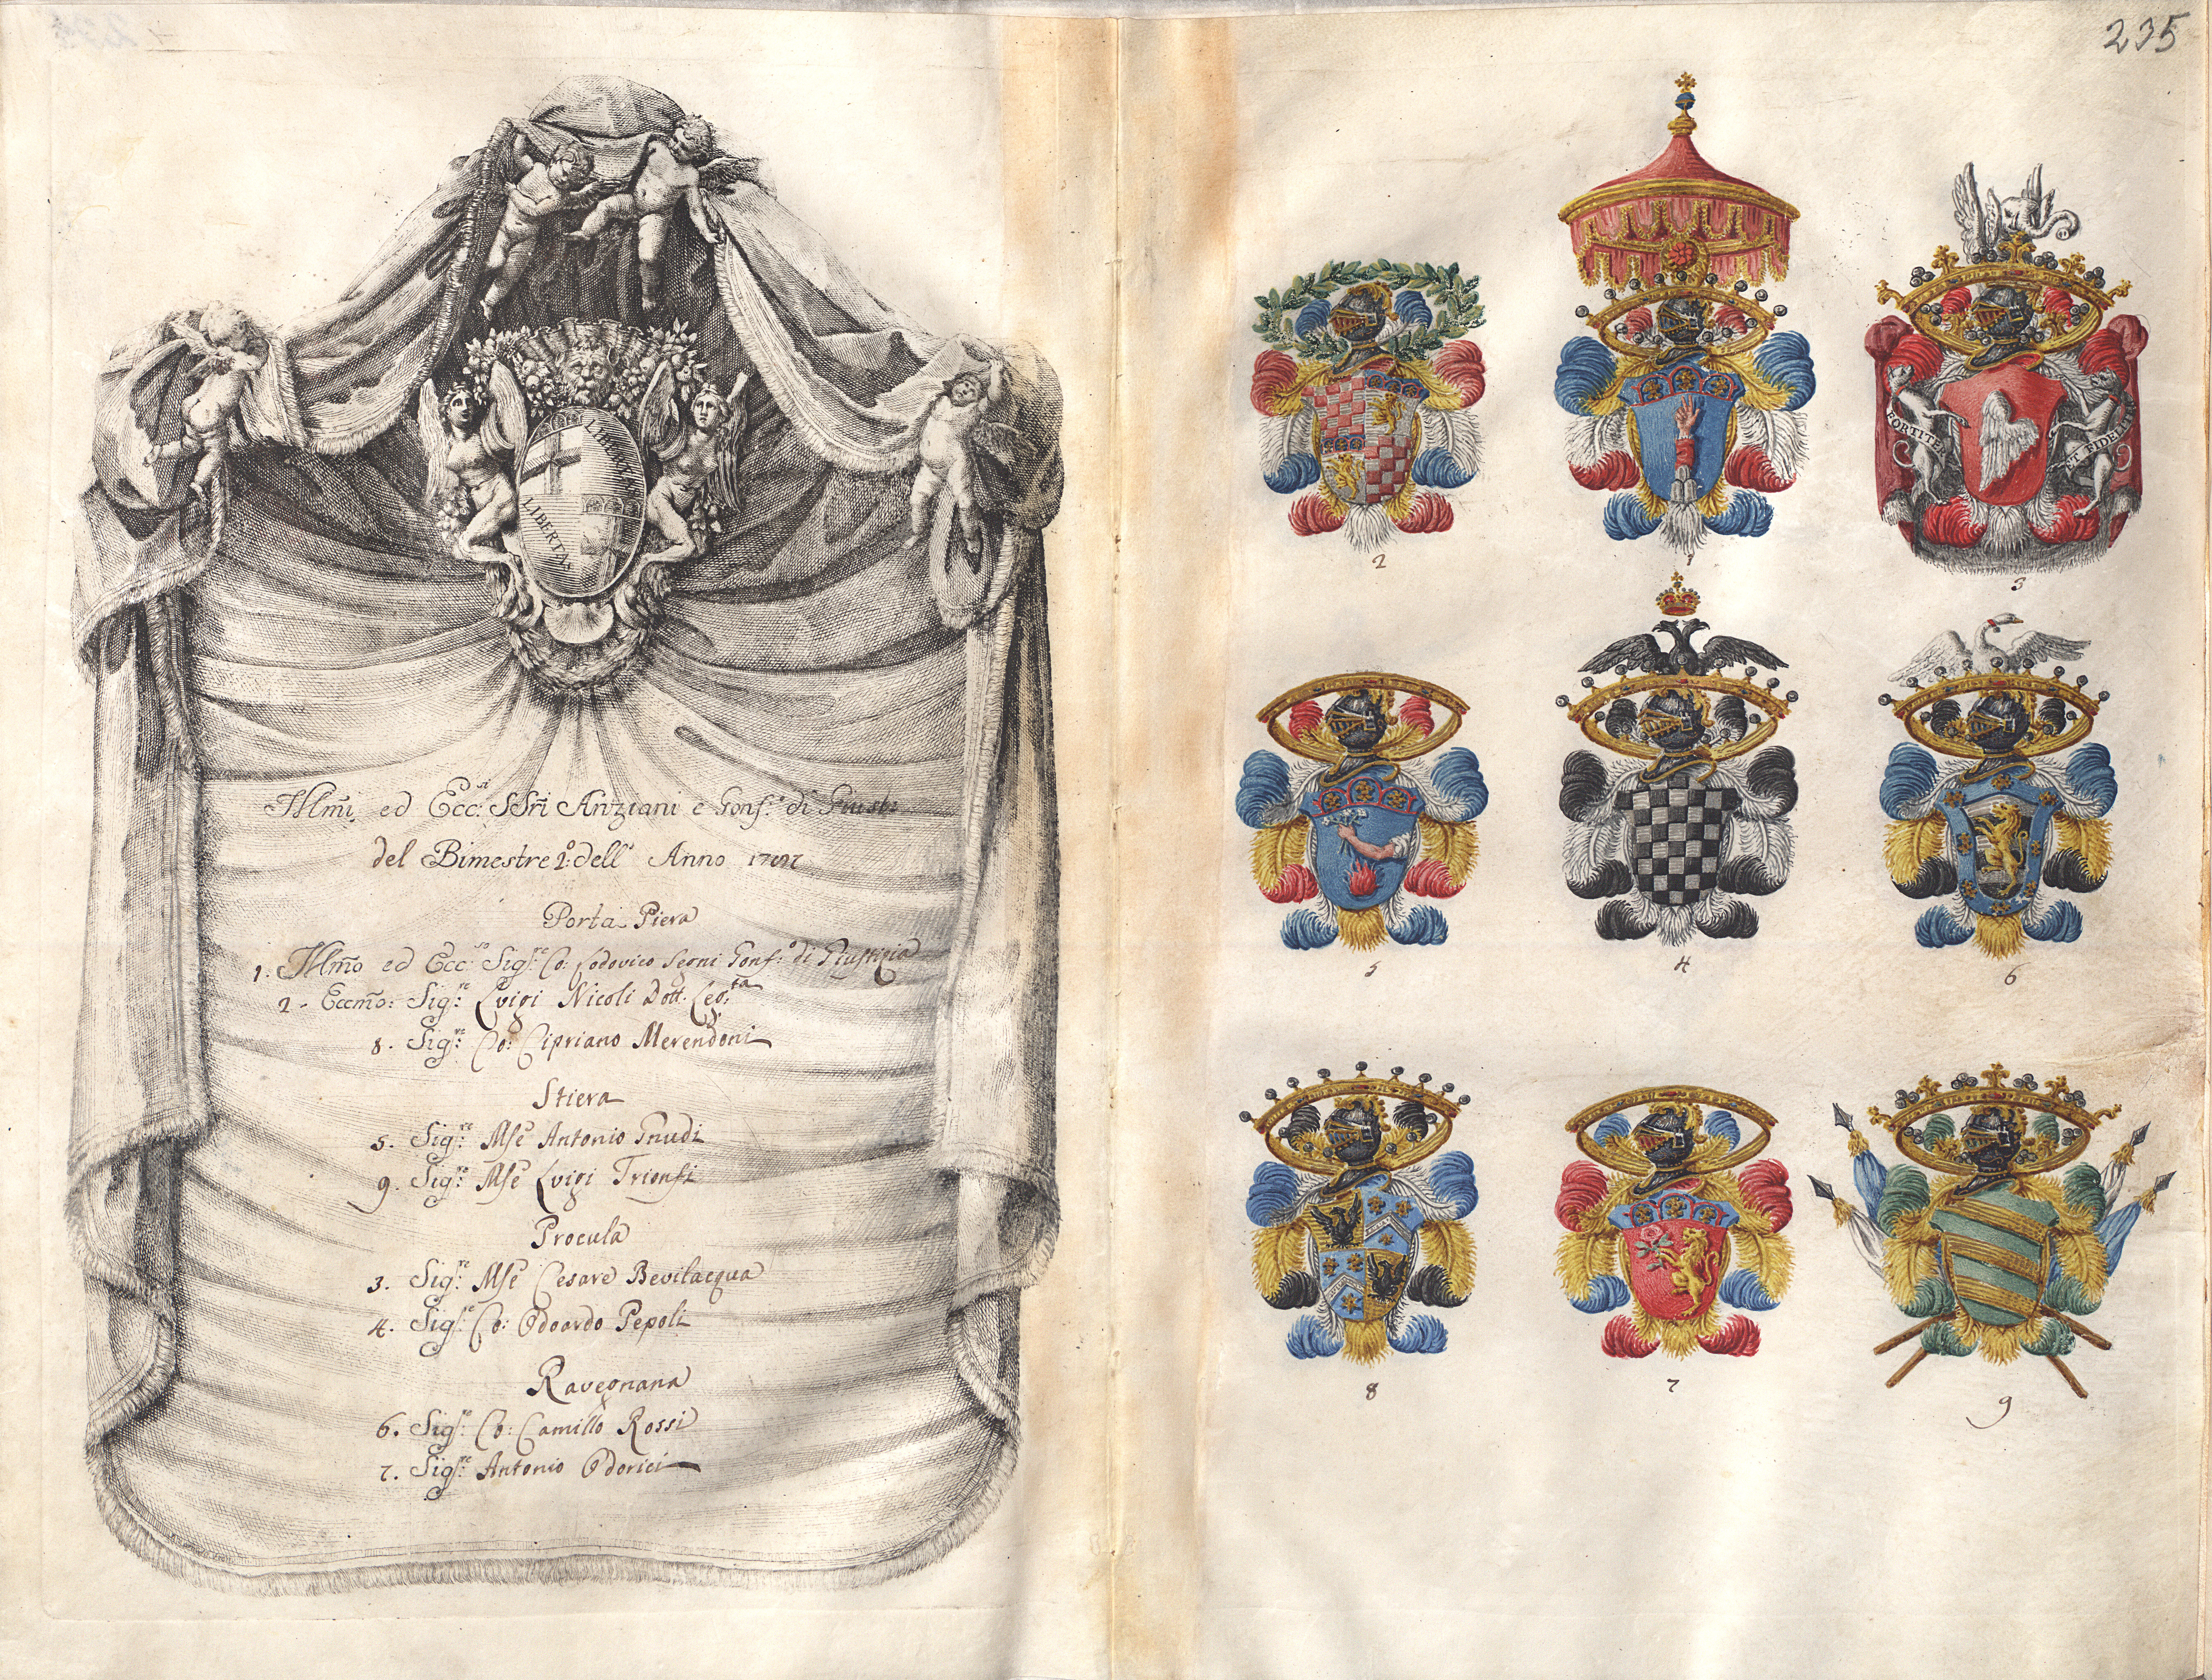 LIBERTAS
LIBERTAS
Illmi ed Ecc:si SSri Anziani e Gonf:e di Giust:a
del Bimestre 2:o dell' Anno
Porta Piera
1. Illmo ed Ecc:mo Sig:re Co: Lodovico Segni Gonf:o di Giustizia
2. Eccmo: Sig:re Luigi Nicoli Dott. Leg:ta
8. Sig:re Co: Cipriano Merendoni
Stiera
5. Sig:re Mse Antonio Gnudi
9. Sig:re Mse Luigi Trionfi
Procula
3. Sig:re Mse Cesare Bevilacqua
4. Sig:re Co: Odoardo Pepoli
Ravegnana
6. Sig:re Co: Camillo Rossi
7. Sig:re Antonio Odorici
235
FORTITER
ET FIDEL
2
1
3
5
4
6
8
7
9